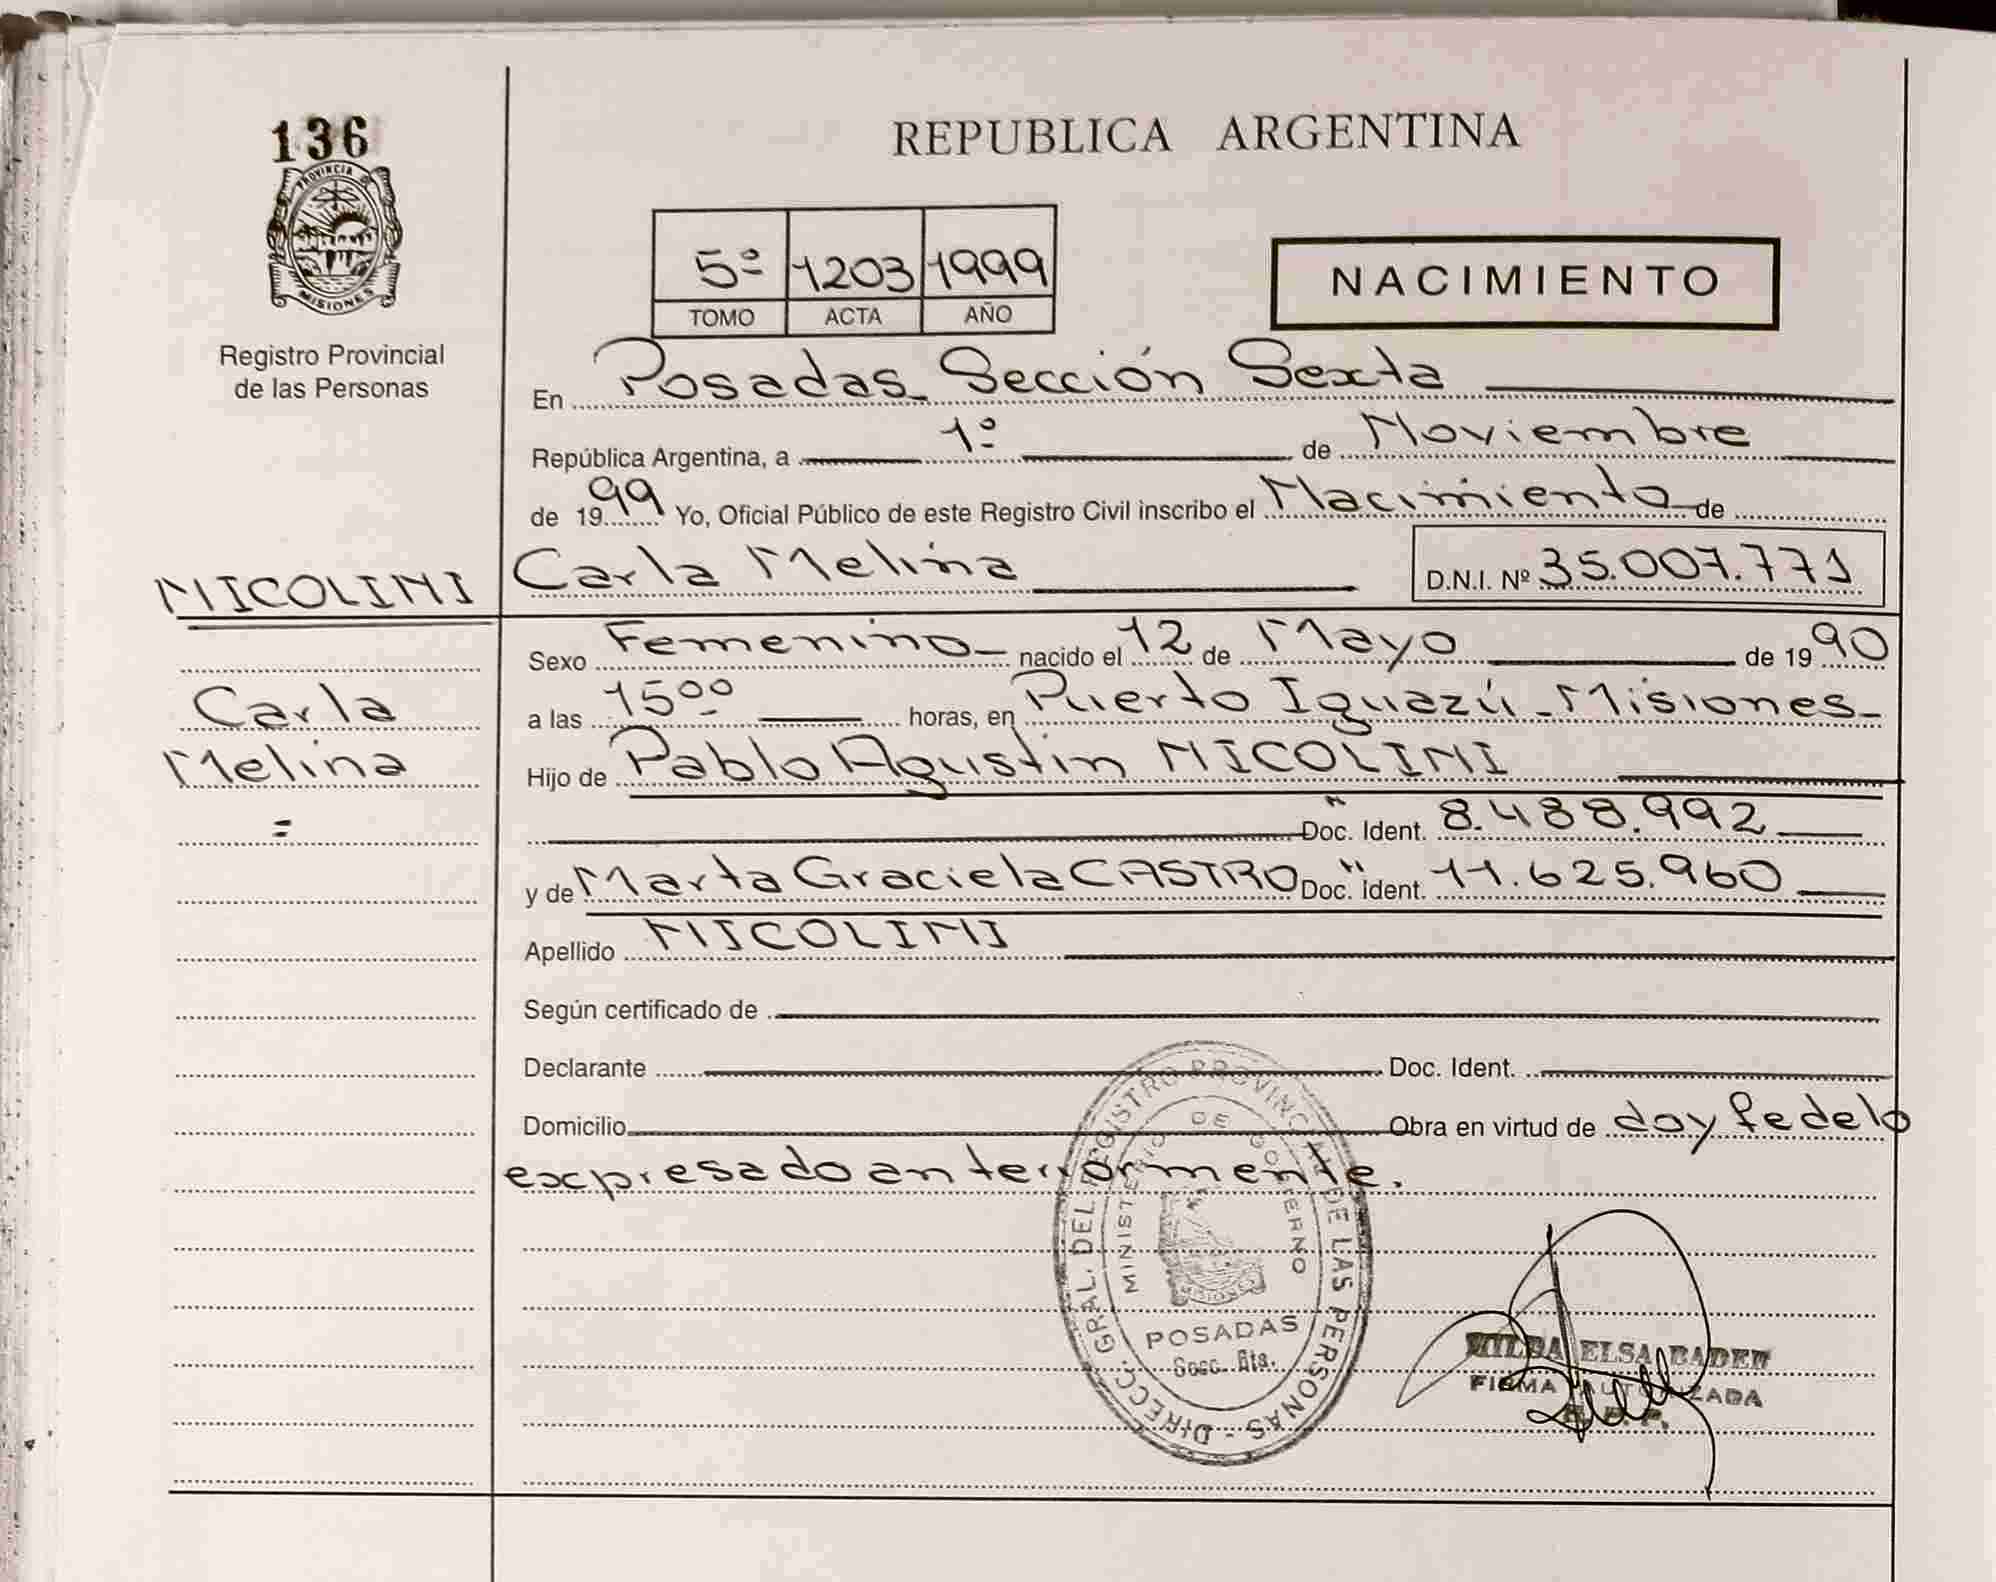 136
PROVINCIA DE
MISIONES
Registro Provincial
de las Personas
REPUBLICA ARGENTINA
5º 1203 1999
TOMO ACTA AÑO
NACIMIENTO
En Posadas Sección Sexta
República Argentina, a 1º de Noviembre
de 1999 Yo, Oficial Público de este Registro Civil inscribo el Nacimiento de
NICOLINI Carla Melina D.N.I. Nº 35.007.771
Sexo Femenino nacido el 12 de Mayo de 1990
Carla
a las 15ºº horas, en Puerto Iguazú - Misiones
Melina
Hijo de Pablo Agustin NICOLINI
" Doc. Ident. 8.488.992
y de Marta Graciela CASTRO " Doc. Ident. 11.625.960
Apellido NICOLINI
Según certificado de
Declarante Doc. Ident.
Domicilio Obra en virtud de doy fe de lo
expresado anteriormente.
DIRECC. GRAL. DEL REGISTRO PROVINCIAL DE LAS PERSONAS -
MINISTERIO DE GOBIERNO
MISIONES
POSADAS
Secc. 6ta.
ELSA
FIRMA AUTORIZADA